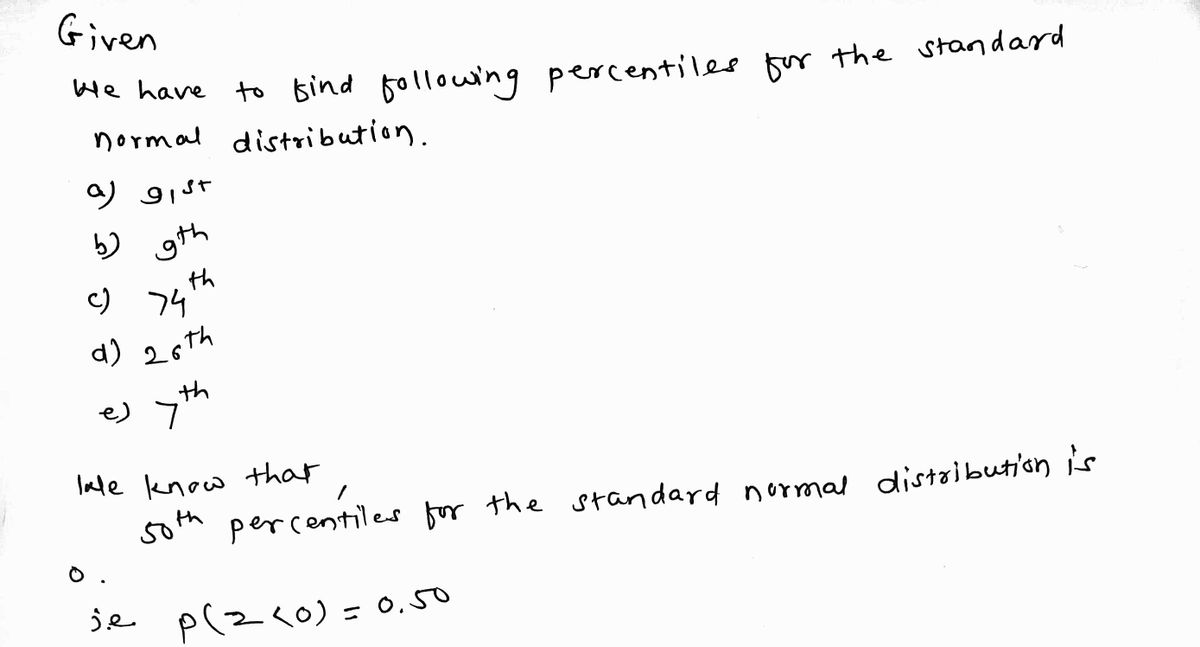 Given
We have to find following percentiles for the standard
normal distribution.
a) 91st
b) 9th
c) 74th
d) 26th
e) 7th
We know that,
50th percentiles for the standard normal distribution is
0.
i.e P(Z<0) = 0.50